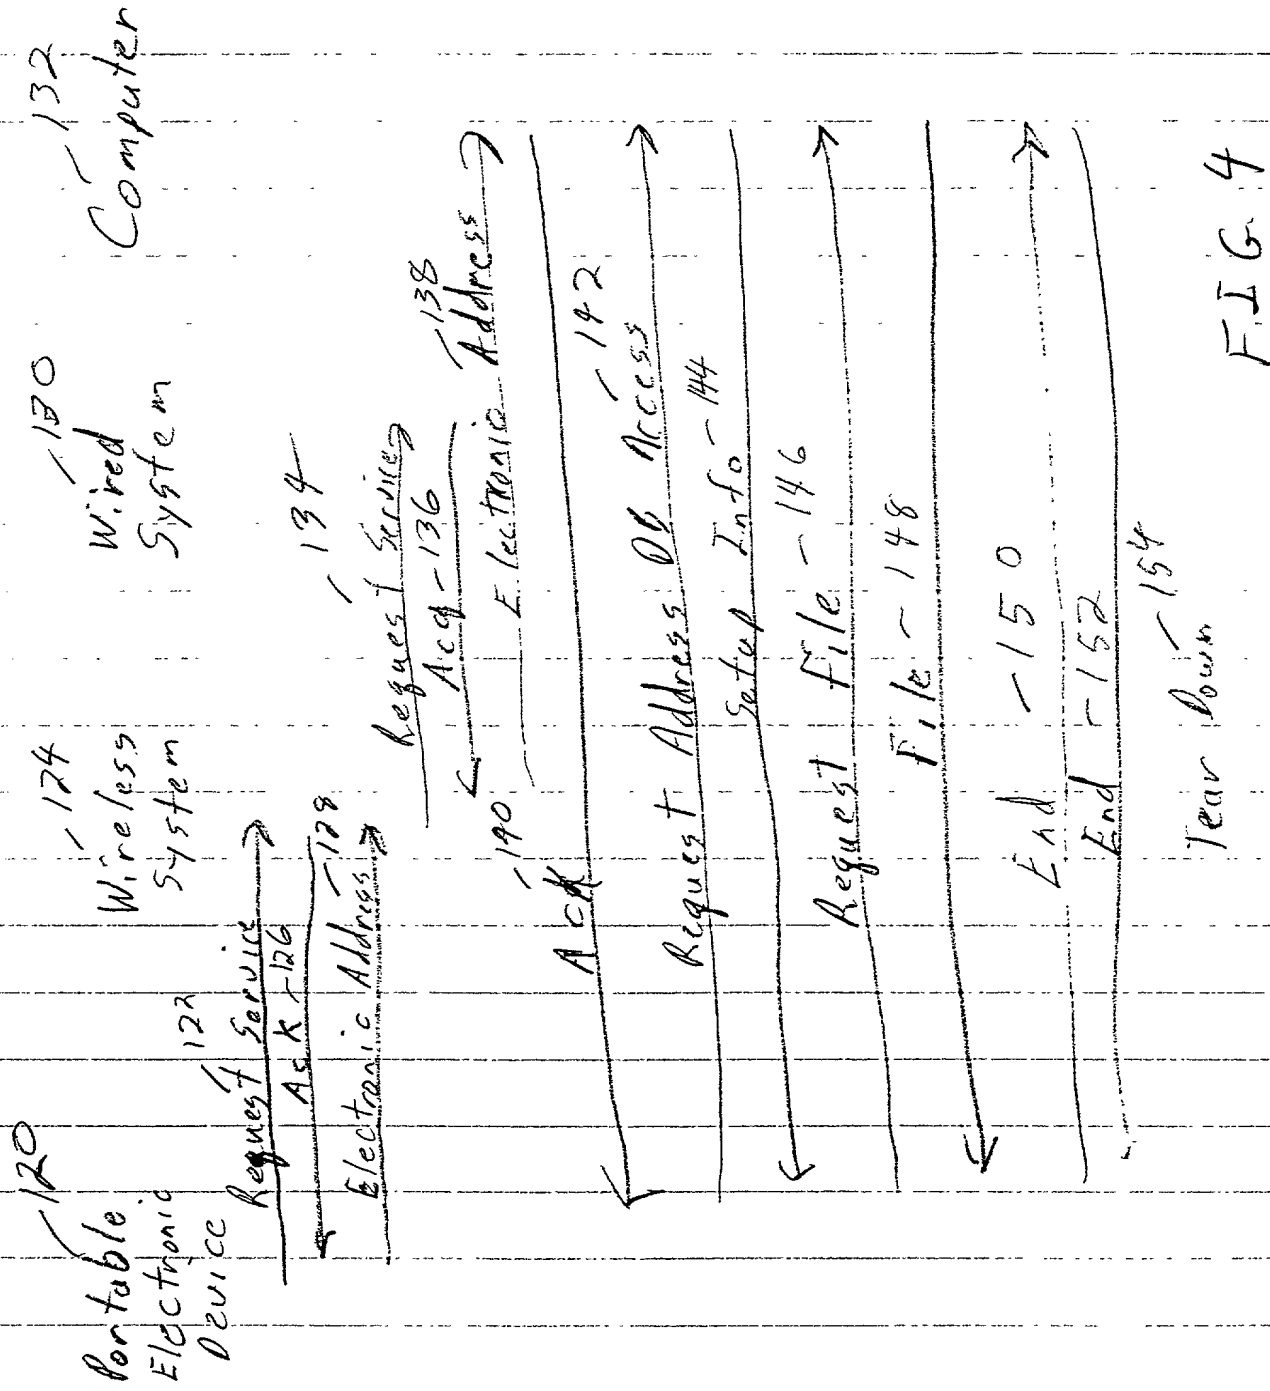 120
Portable
Electronic
Device
124
Wireless
System
130
Wired
System
132
Computer
Request Service 122
Ack - 126
Electronic Address 128
134
Request Service
Acq - 136
Electronic Address 138
Ack 140
Request Address DB Access 142
Setup Info - 144
Request File - 146
File - 148
End - 150
End - 152
Tear Down - 154
FIG. 4